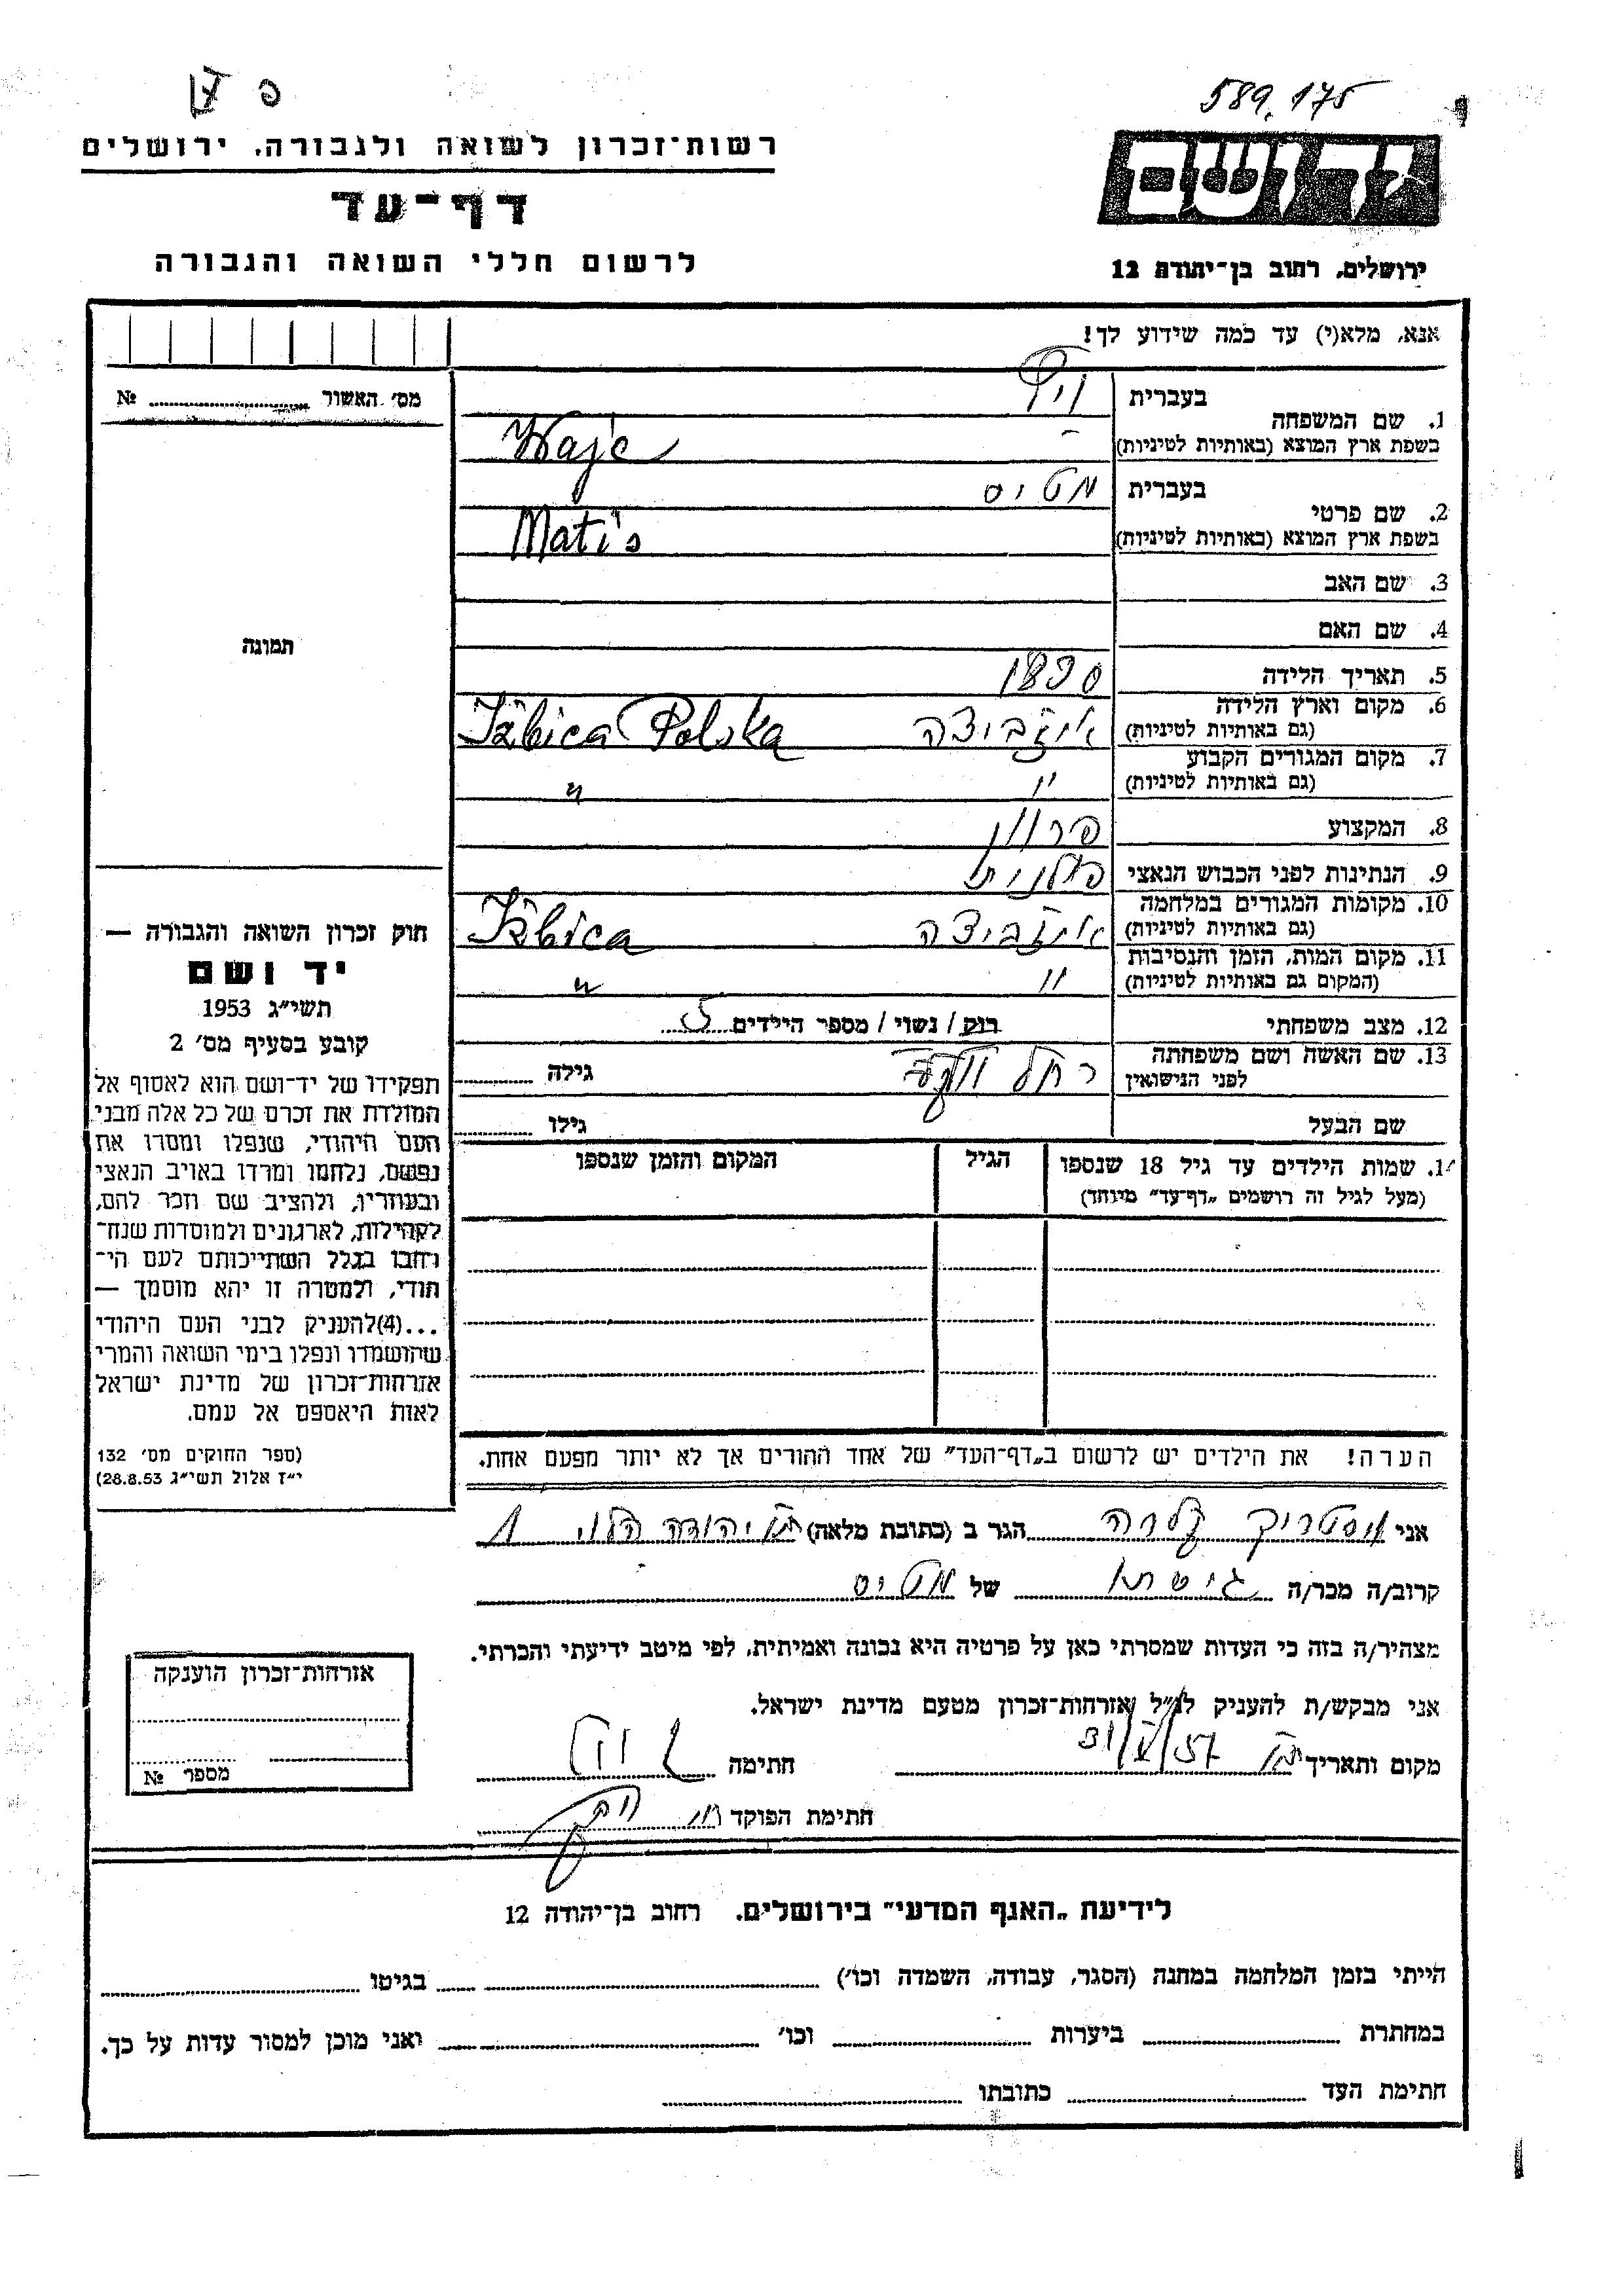 589.175
פ
ידושם
רשות־זכרון לשואה ולגבורה, ירושלים
דף־עד
לרשום חללי השואה והגבורה
ירושלים, רחוב בן־יהודה 12
אנא, מלא(י) עד כמה שידוע לך!
מס׳ האשור № 
1. שם המשפחה
בעברית
בשפת ארץ המוצא (באותיות לטיניות) Wajc
2. שם פרטי
בעברית מטיס
בשפת ארץ המוצא (באותיות לטיניות) Matis
3. שם האב
4. שם האם
5. תאריך הלידה 1890
6. מקום וארץ הלידה
(גם באותיות לטיניות) איזביצה Iżbica Polska
7. מקום המגורים הקבוע
(גם באותיות לטיניות) " "
8. המקצוע פרוון
9. הנתינות לפני הכבוש הנאצי פולנית
10. מקומות המגורים במלחמה
(גם באותיות לטיניות) איזביצה Iżbica
11. מקום המות, הזמן והנסיבות
(המקום גם באותיות לטיניות) " "
12. מצב משפחתי רוק / נשוי / מספר הילדים 5
13. שם האשה ושם משפחתה
לפני הנישואין רחל גילה
שם הבעל גילו
14. שמות הילדים עד גיל 18 שנספו הגיל המקום והזמן שנספו
(מעל לגיל זה רושמים „דף־עד” מיוחד)
הערה! את הילדים יש לרשום ב„דף־העד” של אחד ההורים אך לא יותר מפעם אחת.
תמונה
חוק זכרון השואה והגבורה —
יד ושם
תשי״ג 1953
קובע בסעיף מס׳ 2
תפקידו של יד־ושם הוא לאסוף אל
המולדת את זכרם של כל אלה מבני
העם היהודי, שנפלו ומסרו את
נפשם, נלחמו ומרדו באויב הנאצי
ובעוזריו, ולהציב שם וזכר להם,
לקהילות, לארגונים ולמוסדות שנח־
רחבו בגלל השתייכותם לעם הי־
הודי, ולמטרה זו יהא מוסמך —
...(4)להעניק לבני העם היהודי
שהושמדו ונפלו בימי השואה והמרי
אזרחות־זכרון של מדינת ישראל
לאות היאספם אל עמם.
(ספר החוקים מס׳ 132
י״ז אלול תשי״ג 28.8.53)
אני אוסטריק קלרה הגר ב (כתובת מלאה) ת״א יהודה הלוי 1
קרוב/ה מכר/ה גיסתו של מטיס
מצהיר/ה בזה כי העדות שמסרתי כאן על פרטיה היא נכונה ואמיתית, לפי מיטב ידיעתי והכרתי.
אני מבקש/ת להעניק לנ״ל אזרחות־זכרון מטעם מדינת ישראל.
מקום ותאריך ת״א 31/V/57 חתימה
חתימת הפוקד
אזרחות־זכרון הוענקה
מספר №
לידיעת „האגף המדעי” בירושלים, רחוב בן־יהודה 12
הייתי בזמן המלחמה במחנה (הסגר, עבודה, השמדה וכו׳) בגיטו
במחתרת ביערות וכו׳ ואני מוכן למסור עדות על כך.
חתימת העד כתובתו